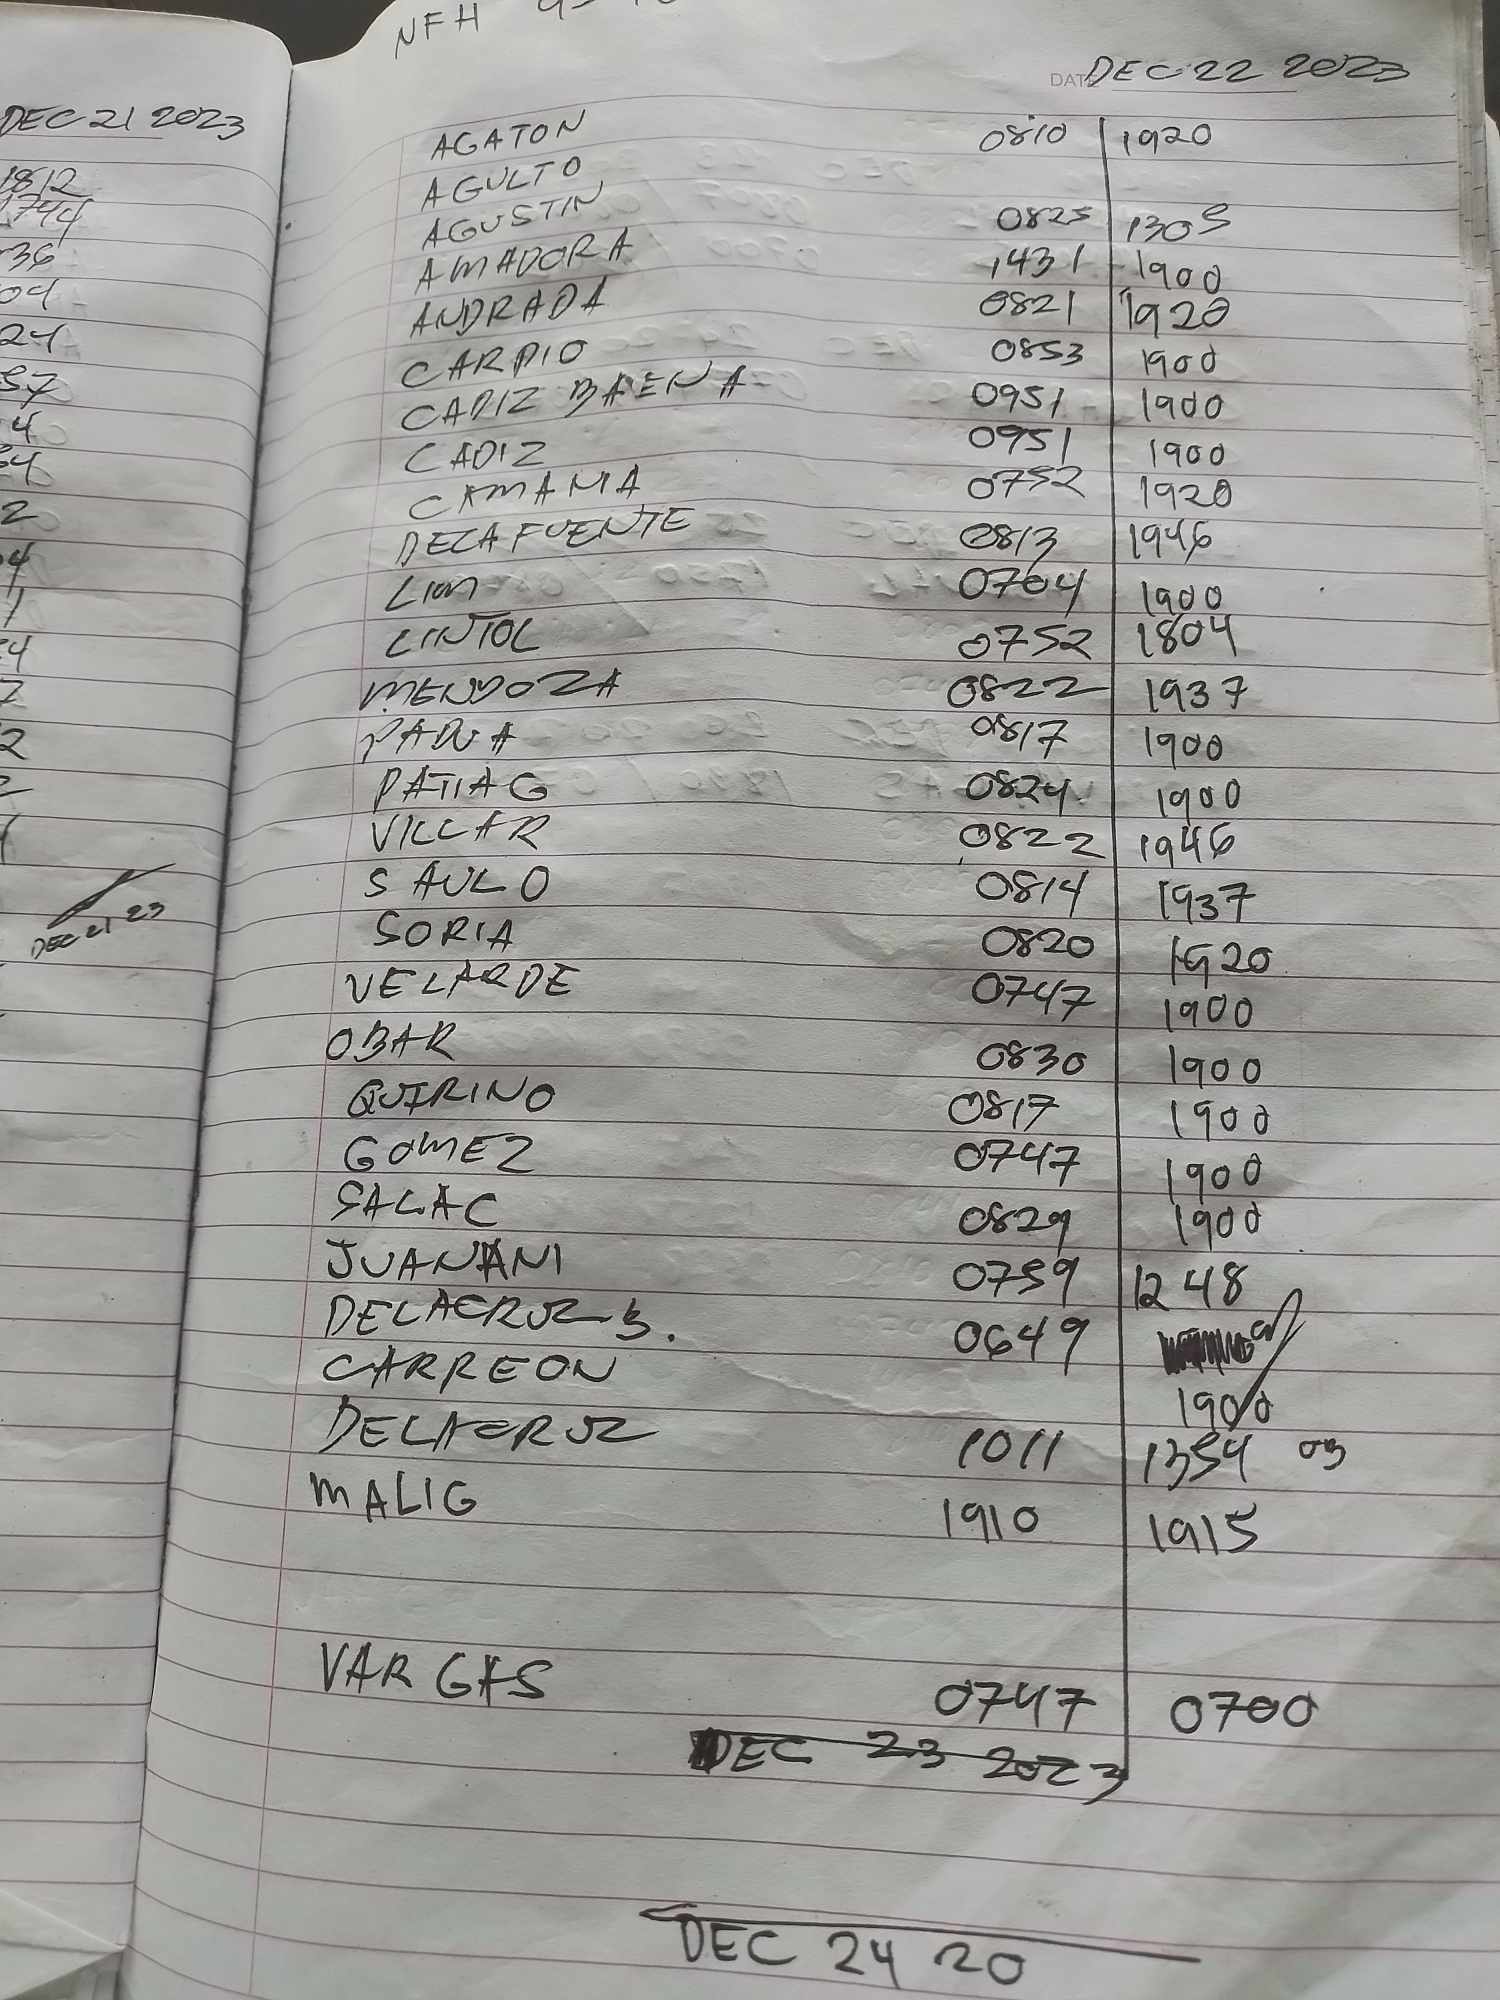 NFH
DEC 21 2023
1812
1744
36
04
24
57
4
54
2
DEC 21 23
DATE DEC 22 2023
AGATON 0810 1920
AGULTO
AGUSTIN 0825 1305
AMADORA 1431 1900
ANDRADA 0821 1920
CARPIO 0853 1900
CADIZ BAENA 0951 1900
CADIZ 0951 1900
CAMANIA 0752 1920
DELA FUENTE 0813 1946
LIM 0704 1900
LINTOL 0752 1804
MENDOZA 0822 1937
PADUA 0817 1900
PATIAG 0824 1900
VILLAR 0822 1946
SAULO 0814 1937
SORIA 0820 1920
VELARDE 0747 1900
OBAR 0830 1900
QUIRINO 0817 1900
GOMEZ 0747 1900
SALAC 0829 1900
JUANANI 0759 1248
DELACRUZ B. 0649
CARREON 1900
DELACRUZ 1011 1354 OB
MALIG 1910 1915
VARGAS 0747 0700
DEC 23 2023
DEC 24 20